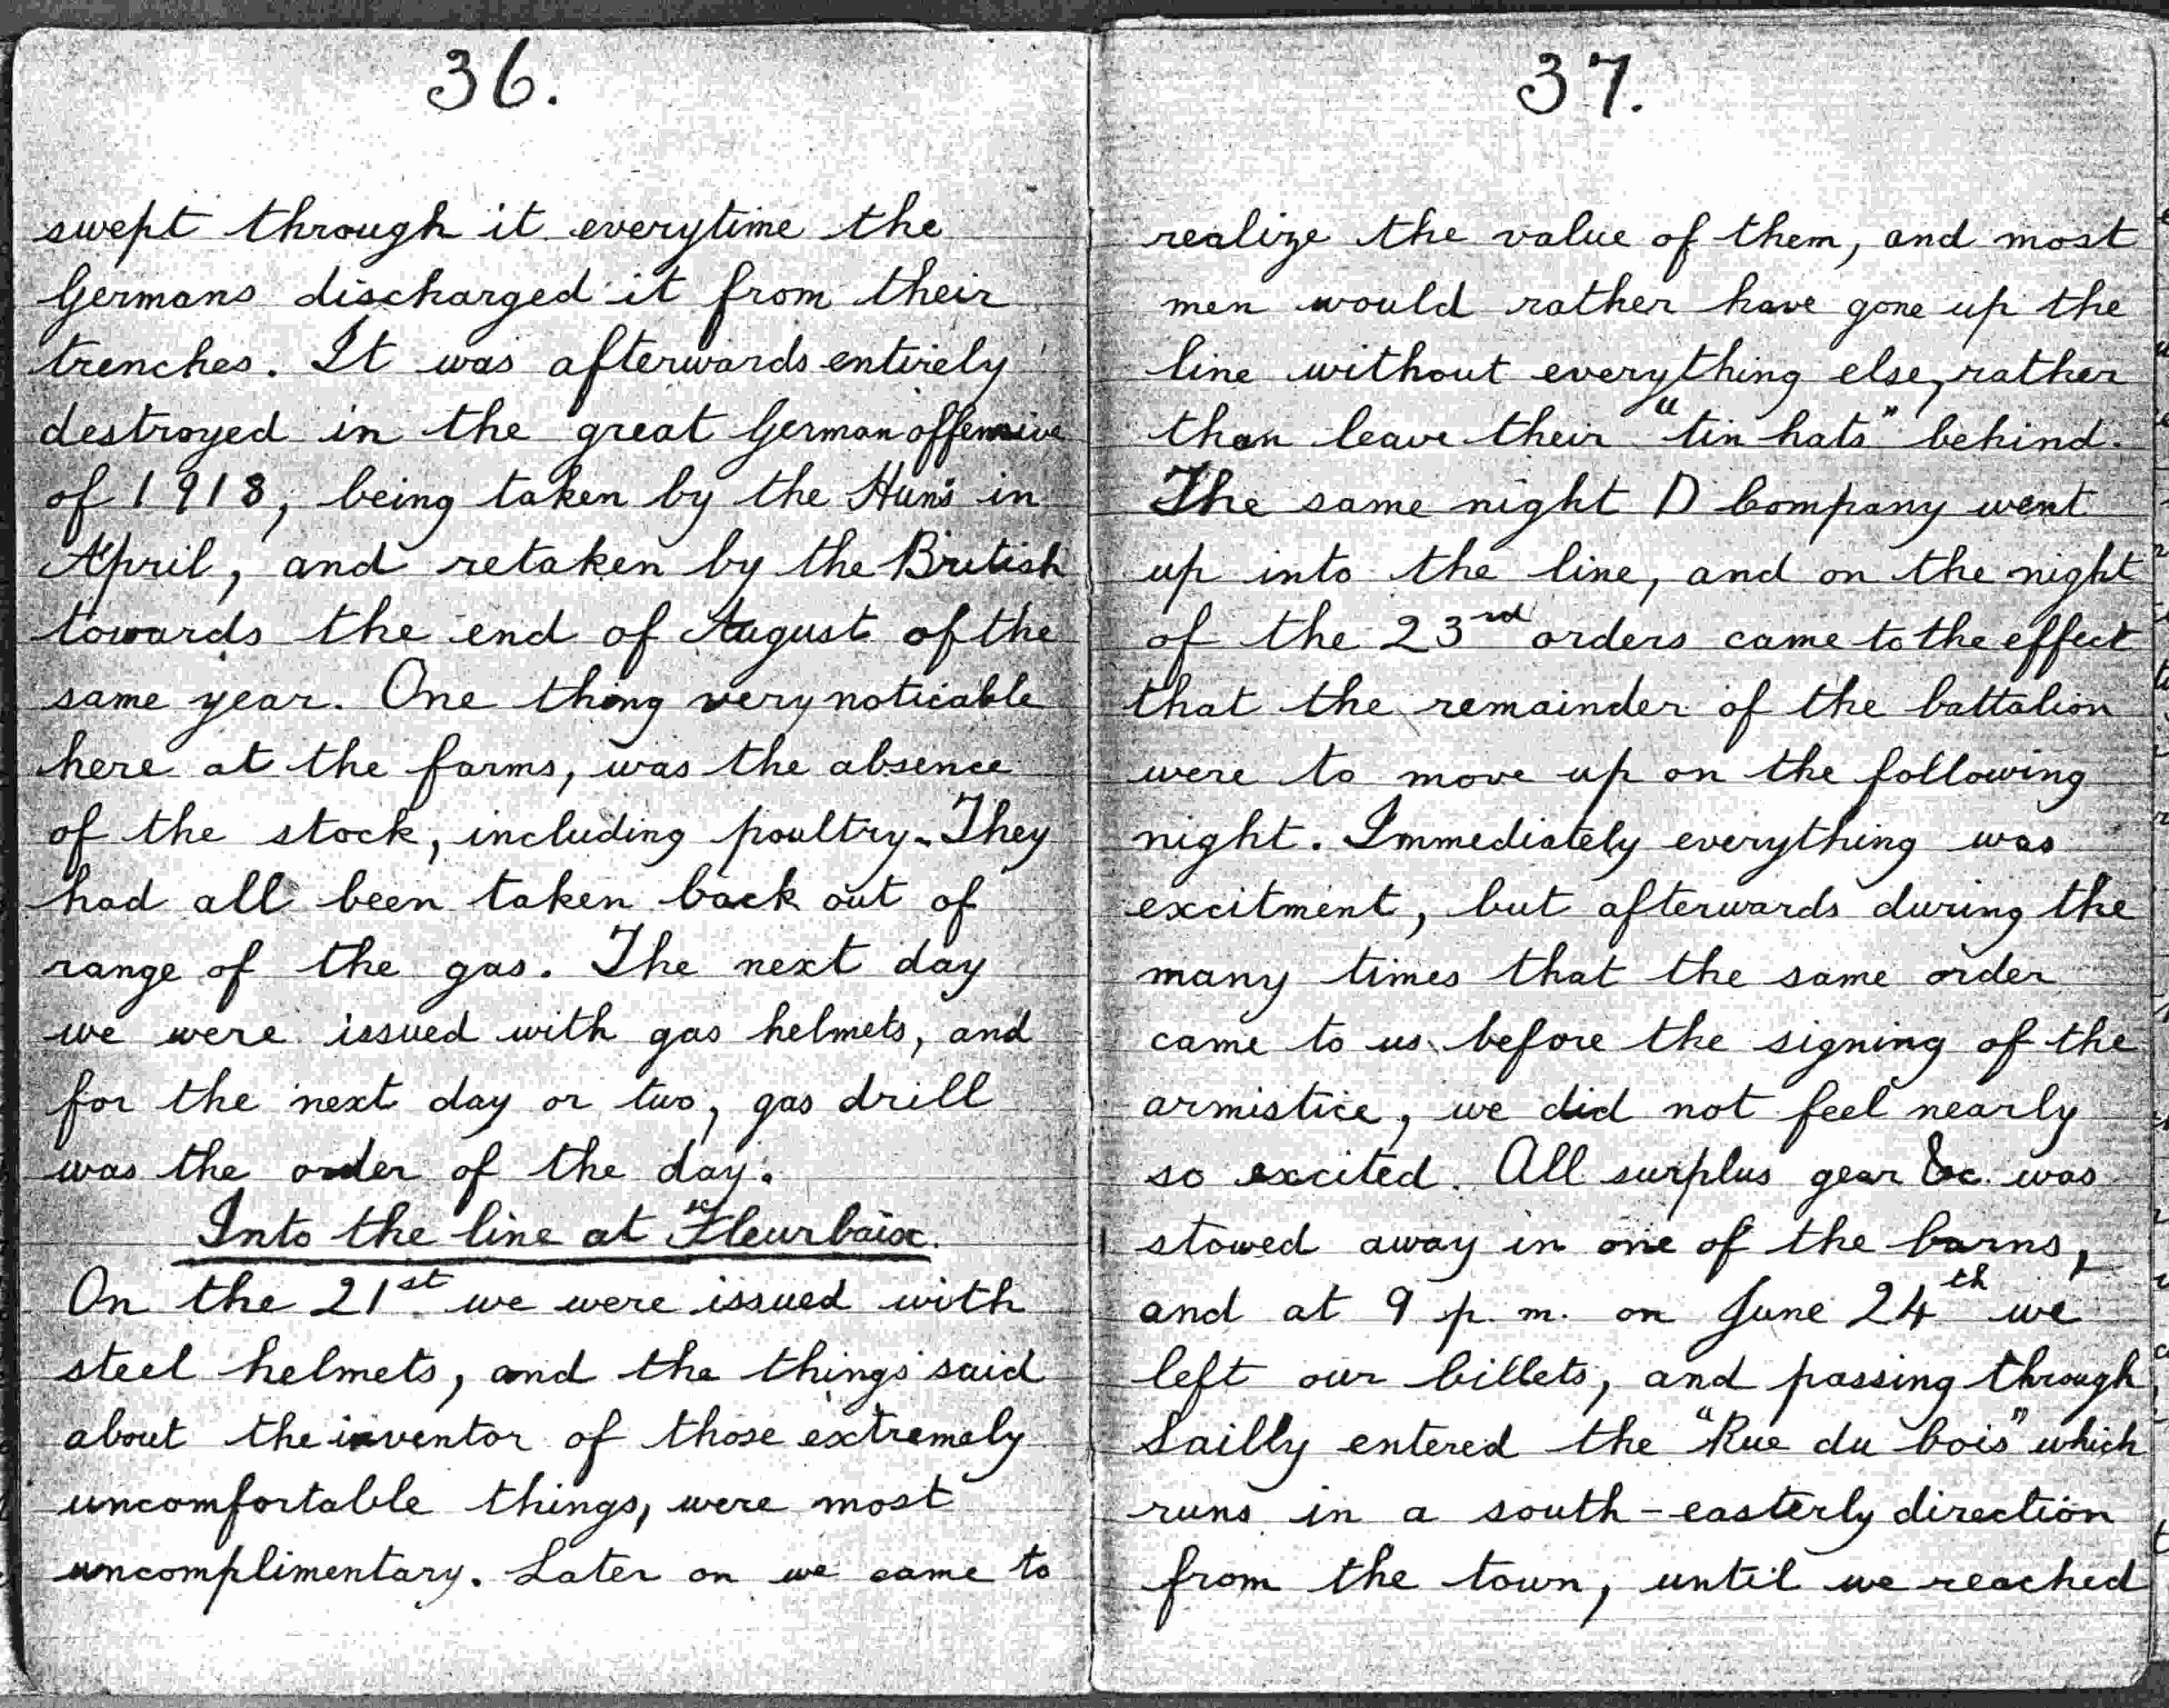 36.
swept through it everytime the
Germans discharged it from their
trenches. It was afterwards entirely
destroyed in the great German offensive
of 1918, being taken by the Huns in
April, and retaken by the British
towards the end of August of the
same year. One thing very noticable
here at the farms, was the absence
of the stock, including poultry. They
had all been taken back out of
range of the gas. The next day
we were issued with gas helmets, and
for the next day or two, gas drill
was the order of the day.
Into the line at Fleurbaix.
On the 21st we were issued with
steel helmets, and the things said
about the inventor of those extremely
uncomfortable things, were most
uncomplimentary. Later on we came to
37.
realize the value of them, and most
men would rather have gone up the
line without everything else, rather
than leave their "tin hats" behind.
The same night D Company went
up into the line, and on the night
of the 23rd orders came to the effect
that the remainder of the battalion
were to move up on the following
night. Immediately everything was
excitment, but afterwards during the
many times that the same order
came to us before the signing of the
armistice, we did not feel nearly
so excited. All surplus gear &c. was
stowed away in one of the barns,
and at 9 p.m. on June 24th we
left our billets, and passing through
Sailly entered the "Rue du bois" which
runs in a south-easterly direction
from the town, until we reached